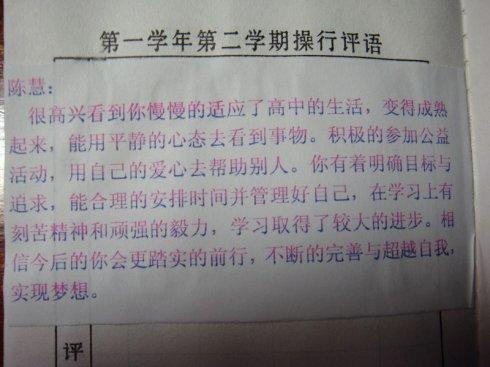 第一学年第二学期操行评语
陈慧：
很高兴看到你慢慢的适应了高中的生活，变得成熟
起来，能用平静的心态去看到事物。积极的参加公益
活动，用自己的爱心去帮助别人。你有着明确目标与
追求，能合理的安排时间并管理好自己，在学习上有
刻苦精神和顽强的毅力，学习取得了较大的进步。相
信今后的你会更踏实的前行，不断的完善与超越自我，
实现梦想。
评